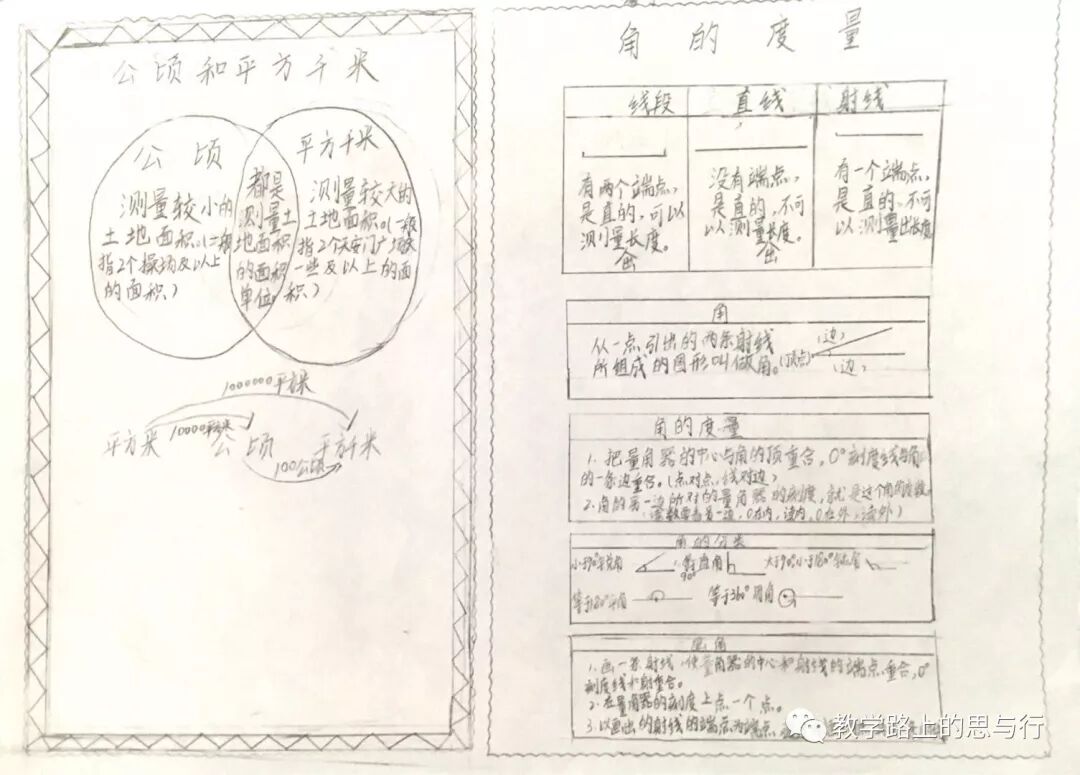 公顷和平方千米
公顷
测量较小的
土地面积。(一般
指2个操场及以上
的面积)
都是
测量土
地面积
的面积
单位。
平方千米
测量较大的
土地面积。(一般
指2个天安门广场
一些及以上的面
积)
1000000平方米
平方米 10000平方米 公顷 平方千米
100公顷
角的度量
线段 直线 射线
有两个端点,
是直的,可以
测量长度。
出
没有端点,
是直的,不可
以测量长度。
出
有一个端点,
是直的,不可
以测量出长度
角
从一点引出的两条射线
所组成的图形叫做角。(顶点)
(边)
(边)
角的度量
1.把量角器的中心与角的顶重合,0°刻度线与角
的一条边重合。(点对点,线对边)
2.角的另一边所对的量角器的刻度,就是这个角的度数。
(读数要看另一边,0在内,读内,0在外,读外)
角的分类
小于90°锐角 等于90°直角 大于90°小于180°钝角
等于180°平角 等于360°周角
画角
1.画一条射线,使量角器的中心和射线的端点重合,0°
刻度线和射重合。
2.在量角器的刻度上点一个点。
3.以画出的射线的端点为端点,
教学路上的思与行